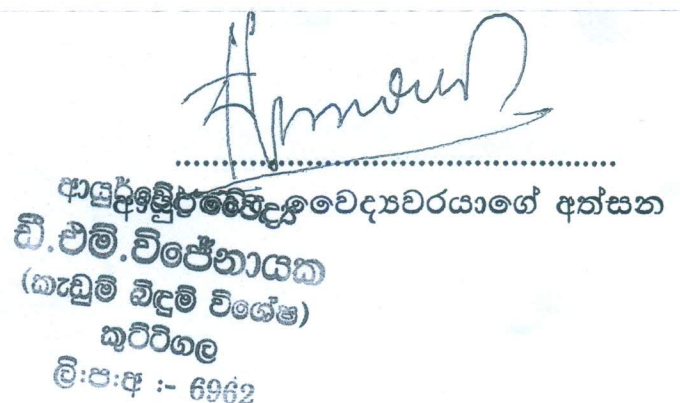 ආයුර්වේද වෛද්‍යවරයාගේ අත්සන
ආයුර්වේද වෛද්‍ය
ඩී.එම්.විජේනායක
(කැඩුම් බිඳුම් විශේෂ)
කුට්ටිගල
ලි:ප:අ :- 6962